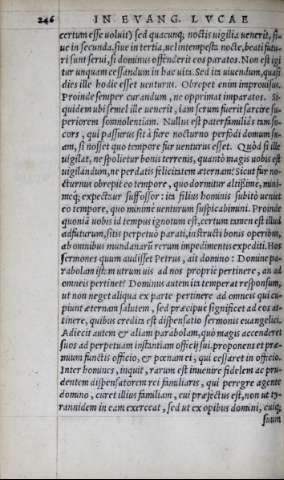 246 IN EVANG. LVCAE
certum esse uoluit) sed quacunq; noctis uigilia uenerit, si-
ue in secunda, siue in tertia, uel intempesta nocte, beati futu-
ri sunt serui, si dominus offenderit eos paratos. Non est igi
tur unquam cessandum in hac uita. Sed ita uiuendum, quasi
dies ille hodie esset uenturus. Obrepet enim improuisus.
Proinde semper curandum, ne opprimat imparatos. Si-
quidem ubi semel ille uenerit, iam serum fuerit sarcire su-
periorem somnolentiam. Nullus est paterfamiliâs tam so-
cors, qui passurus sit à fure nocturno perfodi domum su-
am, si nosset quo tempore fur uenturus esset. Quòd si ille
uigilat, ne spolietur bonis terrenis, quantò magis uobis est
uigilandum, ne perdatis felicitatem æternam? Sicut fur no-
cturnus obrepit eo tempore, quo dormitur altissime, mini-
meq; expectatur suffossor: ita filius hominis subitò ueniet
eo tempore, quo minime uenturum suspicabimini. Proinde
quoniã uobis id tempus ignotum est, certum tamen est illud
adfuturum, sitis perpetuò parati, instructi bonis operibus,
ab omnibus mundanarũ rerum impedimentis expediti. Hos
sermones quum audisset Petrus, ait domino: Domine pa-
rabolam istam utrum uis ad nos propriè pertinere, an ad
omneis pertinet? Dominus autem ita temperat responsum,
ut non neget aliqua ex parte pertinere ad omneis qui cu-
piunt æternam salutem, sed præcipue significet ad eos at-
tinere, quibus credita est dispensatio sermonis euangelici.
Adiecit autem & aliam parabolam, quò magis accenderet
suos ad perpetuam instantiam officij sui, proponens et præ-
mium functis officio, & pœnam ei, qui cessaret in officio.
Inter homines, inquit, rarum est inuenire fidelem ac pru-
dentem dispensatorem rei familiaris, qui peregre agente
domino, curet illius familiam, cui præfectus est, non ut ty-
rannidem in eam exerceat, sed ut ex opibus domini, cuiq;
suum